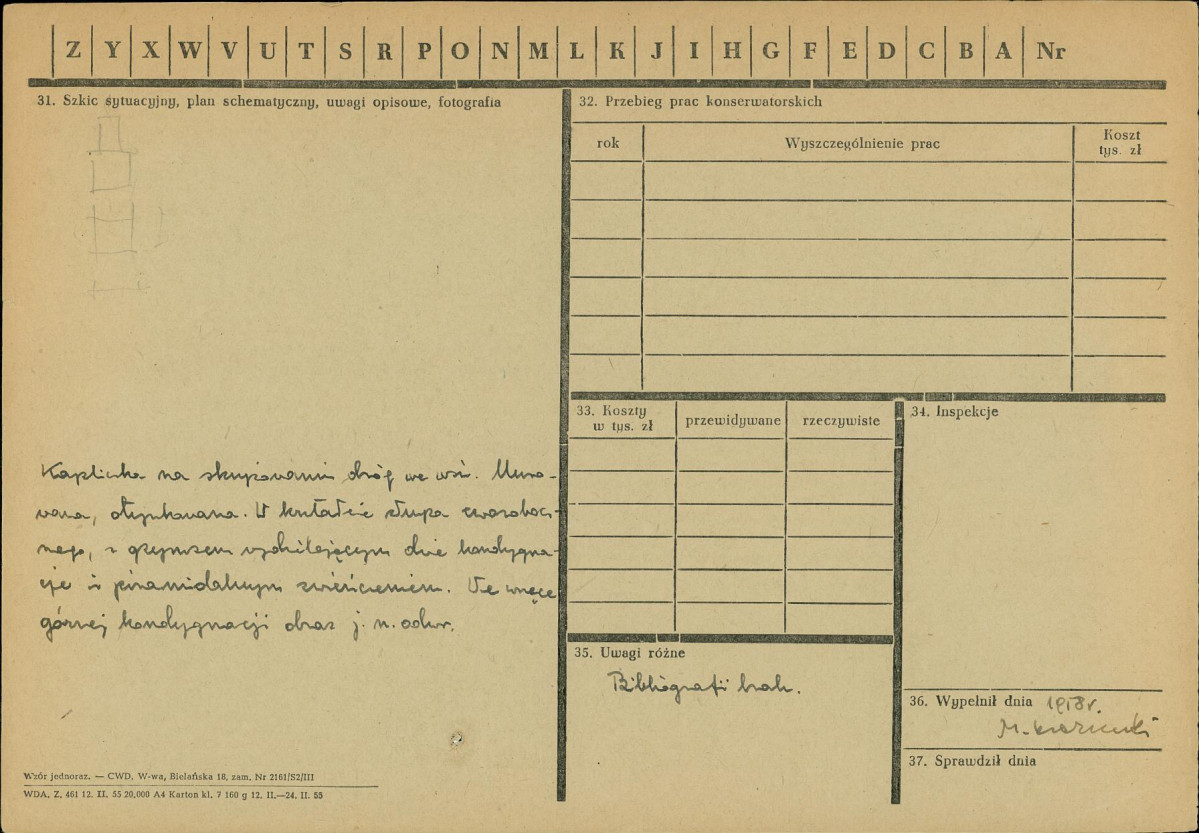 Z Y X W V U T S R P O N M L K J I H G F E D C B A Nr
31. Szkic sytuacyjny, plan schematyczny, uwagi opisowe, fotografia
Kapliczka na skrzyżowaniu dróg we wsi. Muro-
wana, otynkowana. W kształcie słupa czworobocz-
nego, z gzymsem wydzielającym dwie kondygna-
cje i piramidalnym zwieńczeniem. We wnęce
górnej kondygnacji obraz j. n. odwr.
Wzór jednoraz. — CWD, W-wa, Bielańska 18, zam. Nr 2161/S2/III
WDA. Z. 461 12. II. 55 20.000 A4 Karton kl. 7 160 g 12. II.—24. II. 55
32. Przebieg prac konserwatorskich
rok Wyszczególnienie prac Koszt
tys. zł
33. Koszty
w tys. zł przewidywane rzeczywiste
34. Inspekcje
35. Uwagi różne
Bibliografii brak.
36. Wypełnił dnia 1958 r.
M.
37. Sprawdził dnia